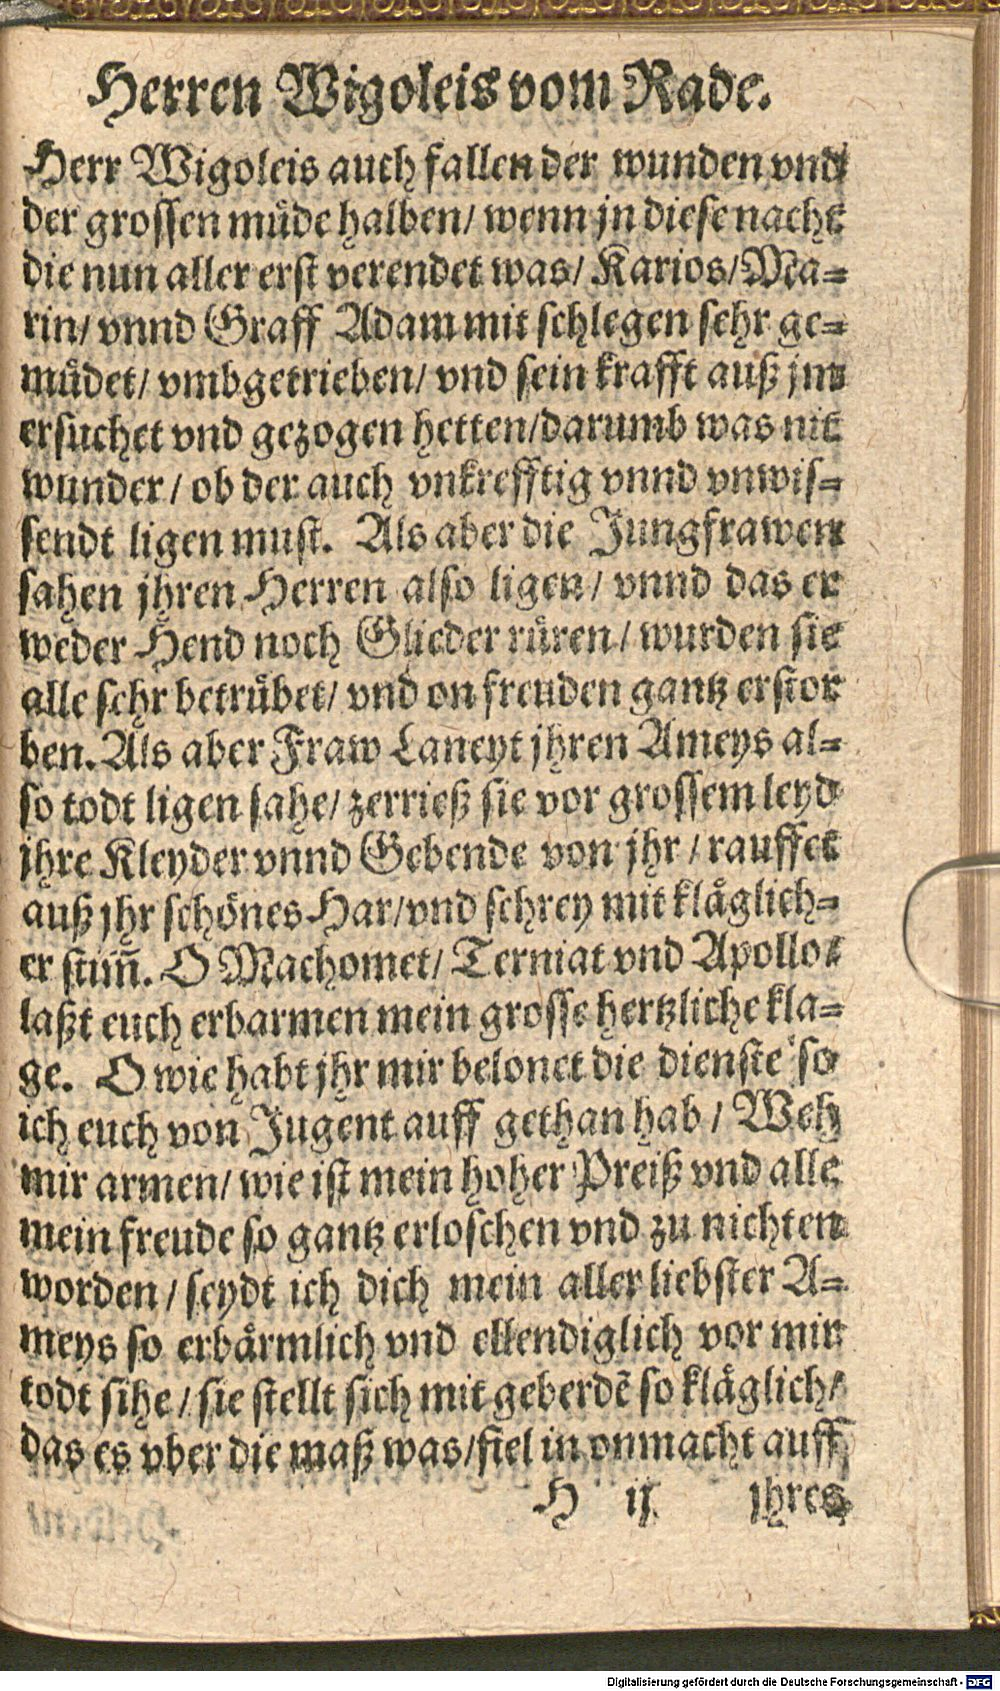 Herren Wigoleis vom Rade.
Herr Wigoleis auch fallen der wunden vnd
der grossen muͤde halben/ wenn jn diese nacht
die nun aller erst verendet was/ Karios/ Ma-
rin/ vnnd Graff Adam mit schlegen sehr ge-
muͤdet/ vmbgetrieben/ vnd sein krafft auß jm
ersuchet vnd gezogen hetten/ darumb was nit
wunder/ ob der auch vnkrefftig vnnd vnwis-
sendt ligen must. Als aber die Jungfrawen
sahen jhren Herren also ligen/ vnnd das er
weder Hend noch Glieder ruͤren/ wurden sie
alle sehr betruͤbet/ vnd on freuden gantz erstor
ben. Als aber Fraw Laneyt jhren Ameys al-
so todt ligen sahe/ zerrieß sie vor grossem leyd
jhre Kleyder vnnd Gebende von jhr/ rauffet
auß jhr schoͤnes Har/ vnd schrey mit klaͤglich-
er stim̃. O Machomet/ Terniat vnd Apollo/
laßt euch erbarmen mein grosse hertzliche kla-
ge. O wie habt jhr mir belonet die dienste so
ich euch von Jugent auff gethan hab/ Weh
mir armen/ wie ist mein hoher Preiß vnd alle
mein freude so gantz erloschen vnd zu nichten
worden/ seydt ich dich mein aller liebster A-
meys so erbaͤrmlich vnd ellendiglich vor mir
todt sihe/ sie stellt sich mit geberdẽ so klaͤglich/
das es vber die maß was/ fiel in onmacht auff
H ij jhres
Digitalisierung gefördert durch die Deutsche Forschungsgemeinschaft - DFG